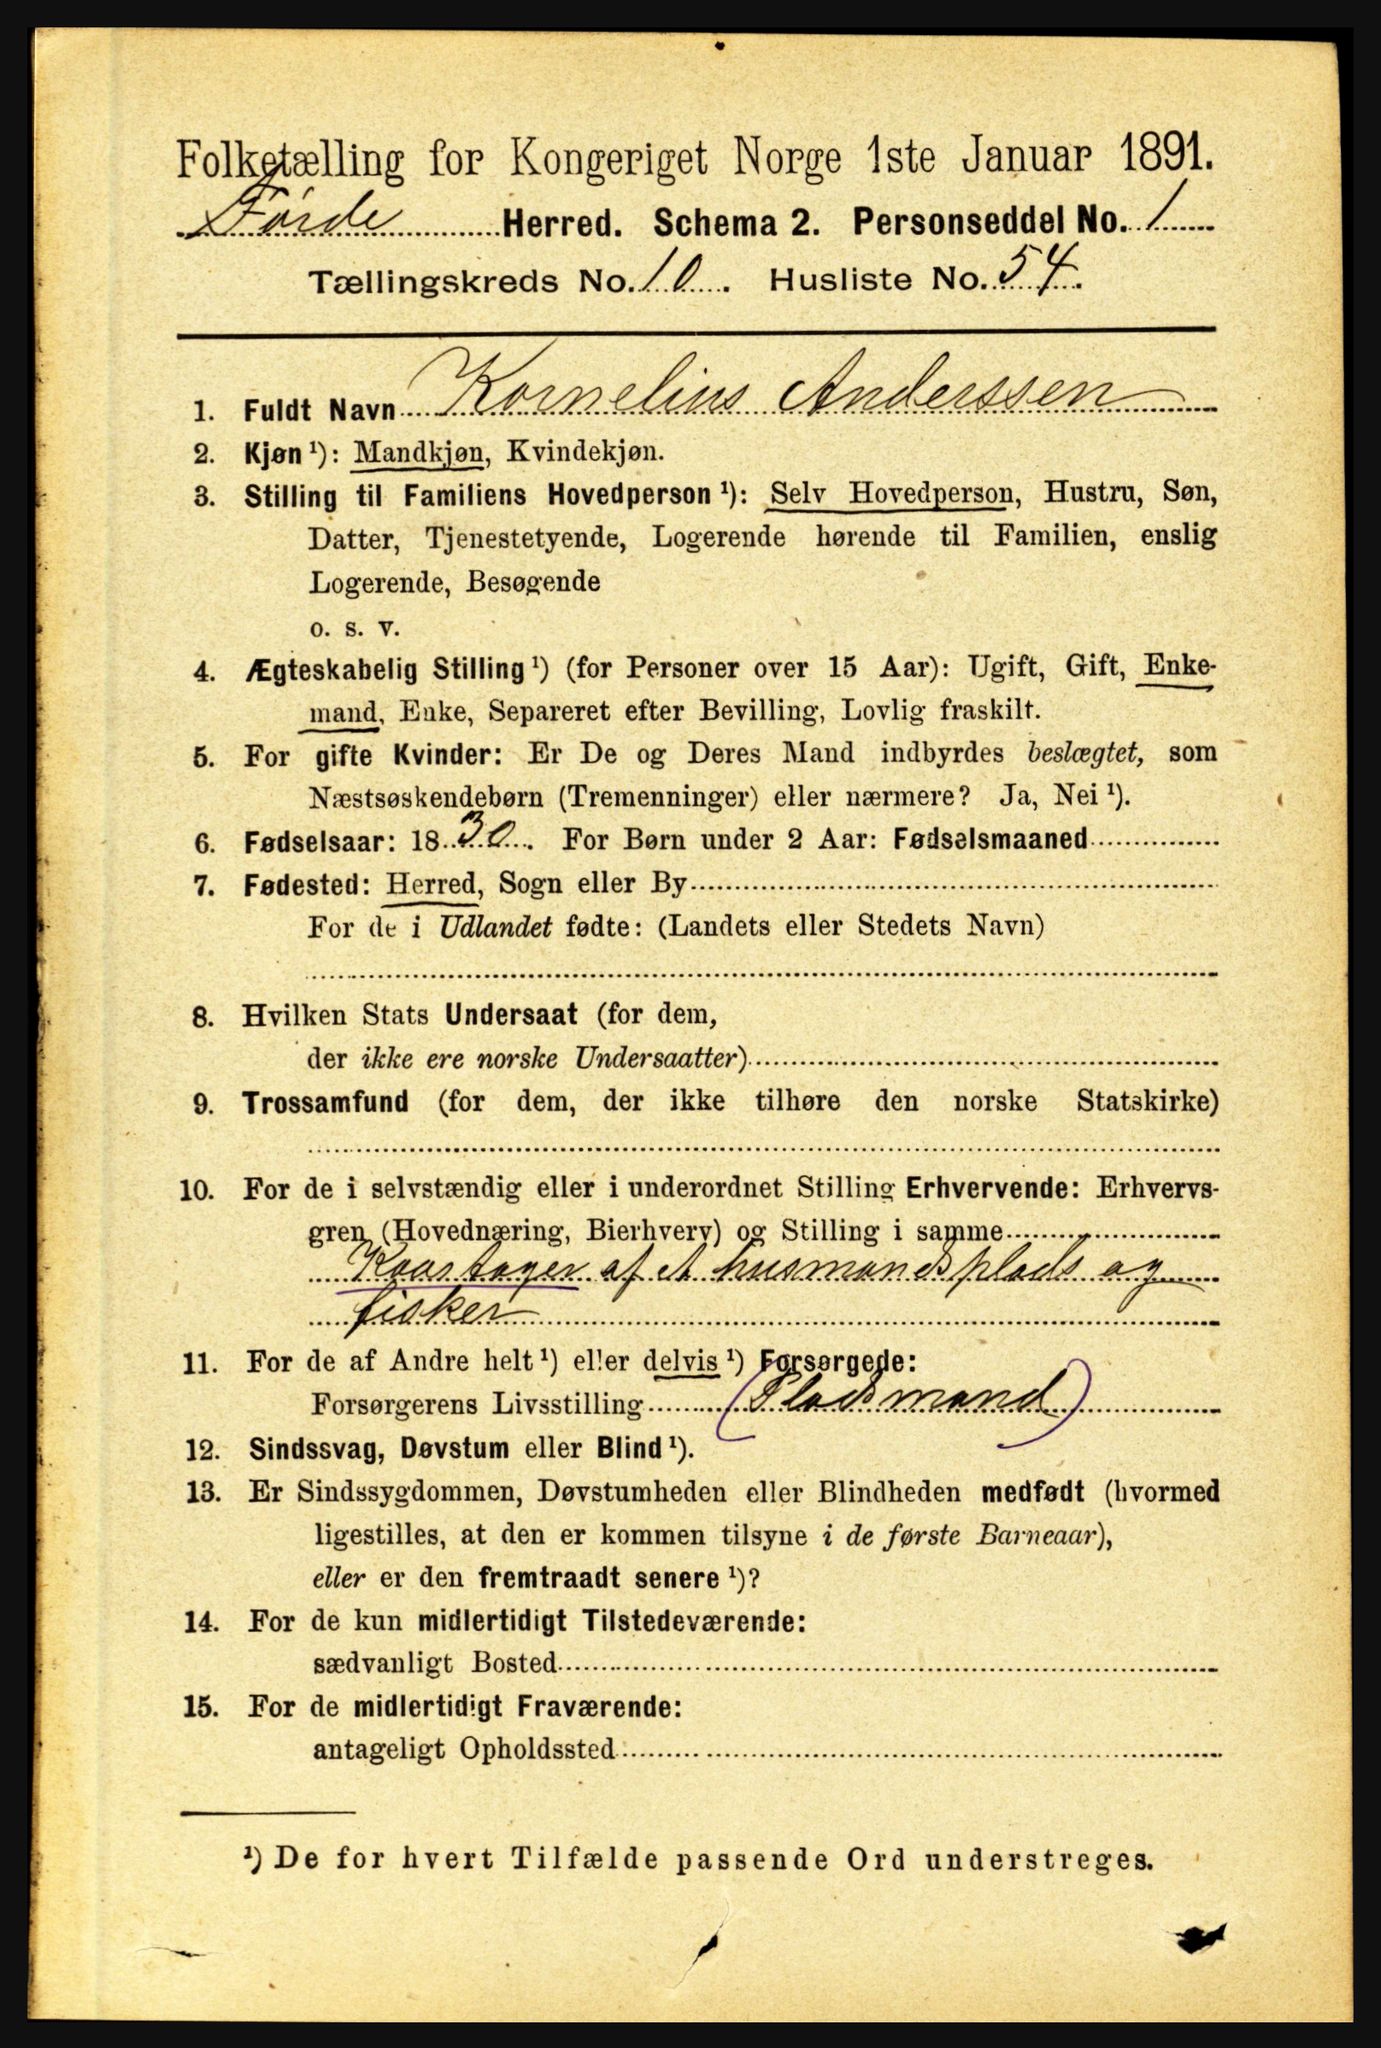 Folketælling for Kongeriget Norge 1ste Januar 1891.
Førde Herred. Schema 2. Personseddel No. 1
Tællingskreds No. 10. Husliste No. 54.
1. Fuldt Navn Kornelius Anderssen
2. Kjøn ¹): Mandkjøn, Kvindekjøn.
3. Stilling til Familiens Hovedperson ¹): Selv Hovedperson, Hustru, Søn,
Datter, Tjenestetyende, Logerende hørende til Familien, enslig
Logerende, Besøgende
o. s. v.
4. Ægteskabelig Stilling ¹) (for Personer over 15 Aar): Ugift, Gift, Enke-
mand, Enke, Separeret efter Bevilling, Lovlig fraskilt.
5. For gifte Kvinder: Er De og Deres Mand indbyrdes beslægtet, som
Næstsøskendebørn (Tremenninger) eller nærmere? Ja, Nei ¹).
6. Fødselsaar: 1830. For Børn under 2 Aar: Fødselsmaaned
7. Fødested: Herred, Sogn eller By
For de i Udlandet fødte: (Landets eller Stedets Navn)
8. Hvilken Stats Undersaat (for dem,
der ikke ere norske Undersaatter)
9. Trossamfund (for dem, der ikke tilhøre den norske Statskirke)
10. For de i selvstændig eller i underordnet Stilling Erhvervende: Erhvervs-
gren (Hovednæring, Bierhverv) og Stilling i samme
Kaartager af et husmandsplads og
fisker
11. For de af Andre helt ¹) eller delvis ¹) Forsørgede:
Forsørgerens Livsstilling (Pladsmand)
12. Sindssvag, Døvstum eller Blind ¹).
13. Er Sindssygdommen, Døvstumheden eller Blindheden medfødt (hvormed
ligestilles, at den er kommen tilsyne i de første Barneaar),
eller er den fremtraadt senere ¹)?
14. For de kun midlertidigt Tilstedeværende:
sædvanligt Bosted
15. For de midlertidigt Fraværende:
antageligt Opholdssted
¹) De for hvert Tilfælde passende Ord understreges.